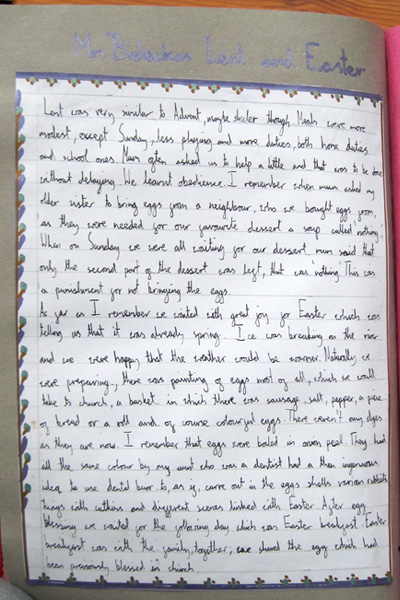 Mr Lent and Easter
Lent was very similar to Advent, maybe stricter though. Meals were more
modest, except Sunday, less playing and more duties, both home duties
and school ones. Mum often asked us to help a little and that was to be done
without delaying. We learnt obedience. I remember when mum asked my
older sister to bring eggs from a neighbour, who we bought eggs from,
as they were needed for our favourite dessert a soup called "nothing".
When on Sunday we were all waiting for our dessert, mum said that
only the second part of the dessert was left, that was nothing. This was
a punishment for not bringing the eggs.
As far as I remember we waited with great joy for Easter which was
telling us that it was already spring. Ice was breaking on the river
and we were happy that the weather would be warmer. Naturally we
were preparing, there was painting of eggs most of all, which we would
take to church, a basket in which there was sausage, salt, pepper, a piece
of bread or a roll and of course colourful eggs. There weren't any dyes
as they are now. I remember that eggs were boiled in onion peel. They had
all the same colour by my aunt who was a dentist had a then ingenious
idea to use dental burr to, as if, carve out in the eggs shells various rabbits,
twigs with catkins and different scenes linked with Easter. After egg
blessing we waited for the following day which was Easter breakfast. Easter
breakfast was with the family, together, we shared the egg which had
been previously blessed in church.